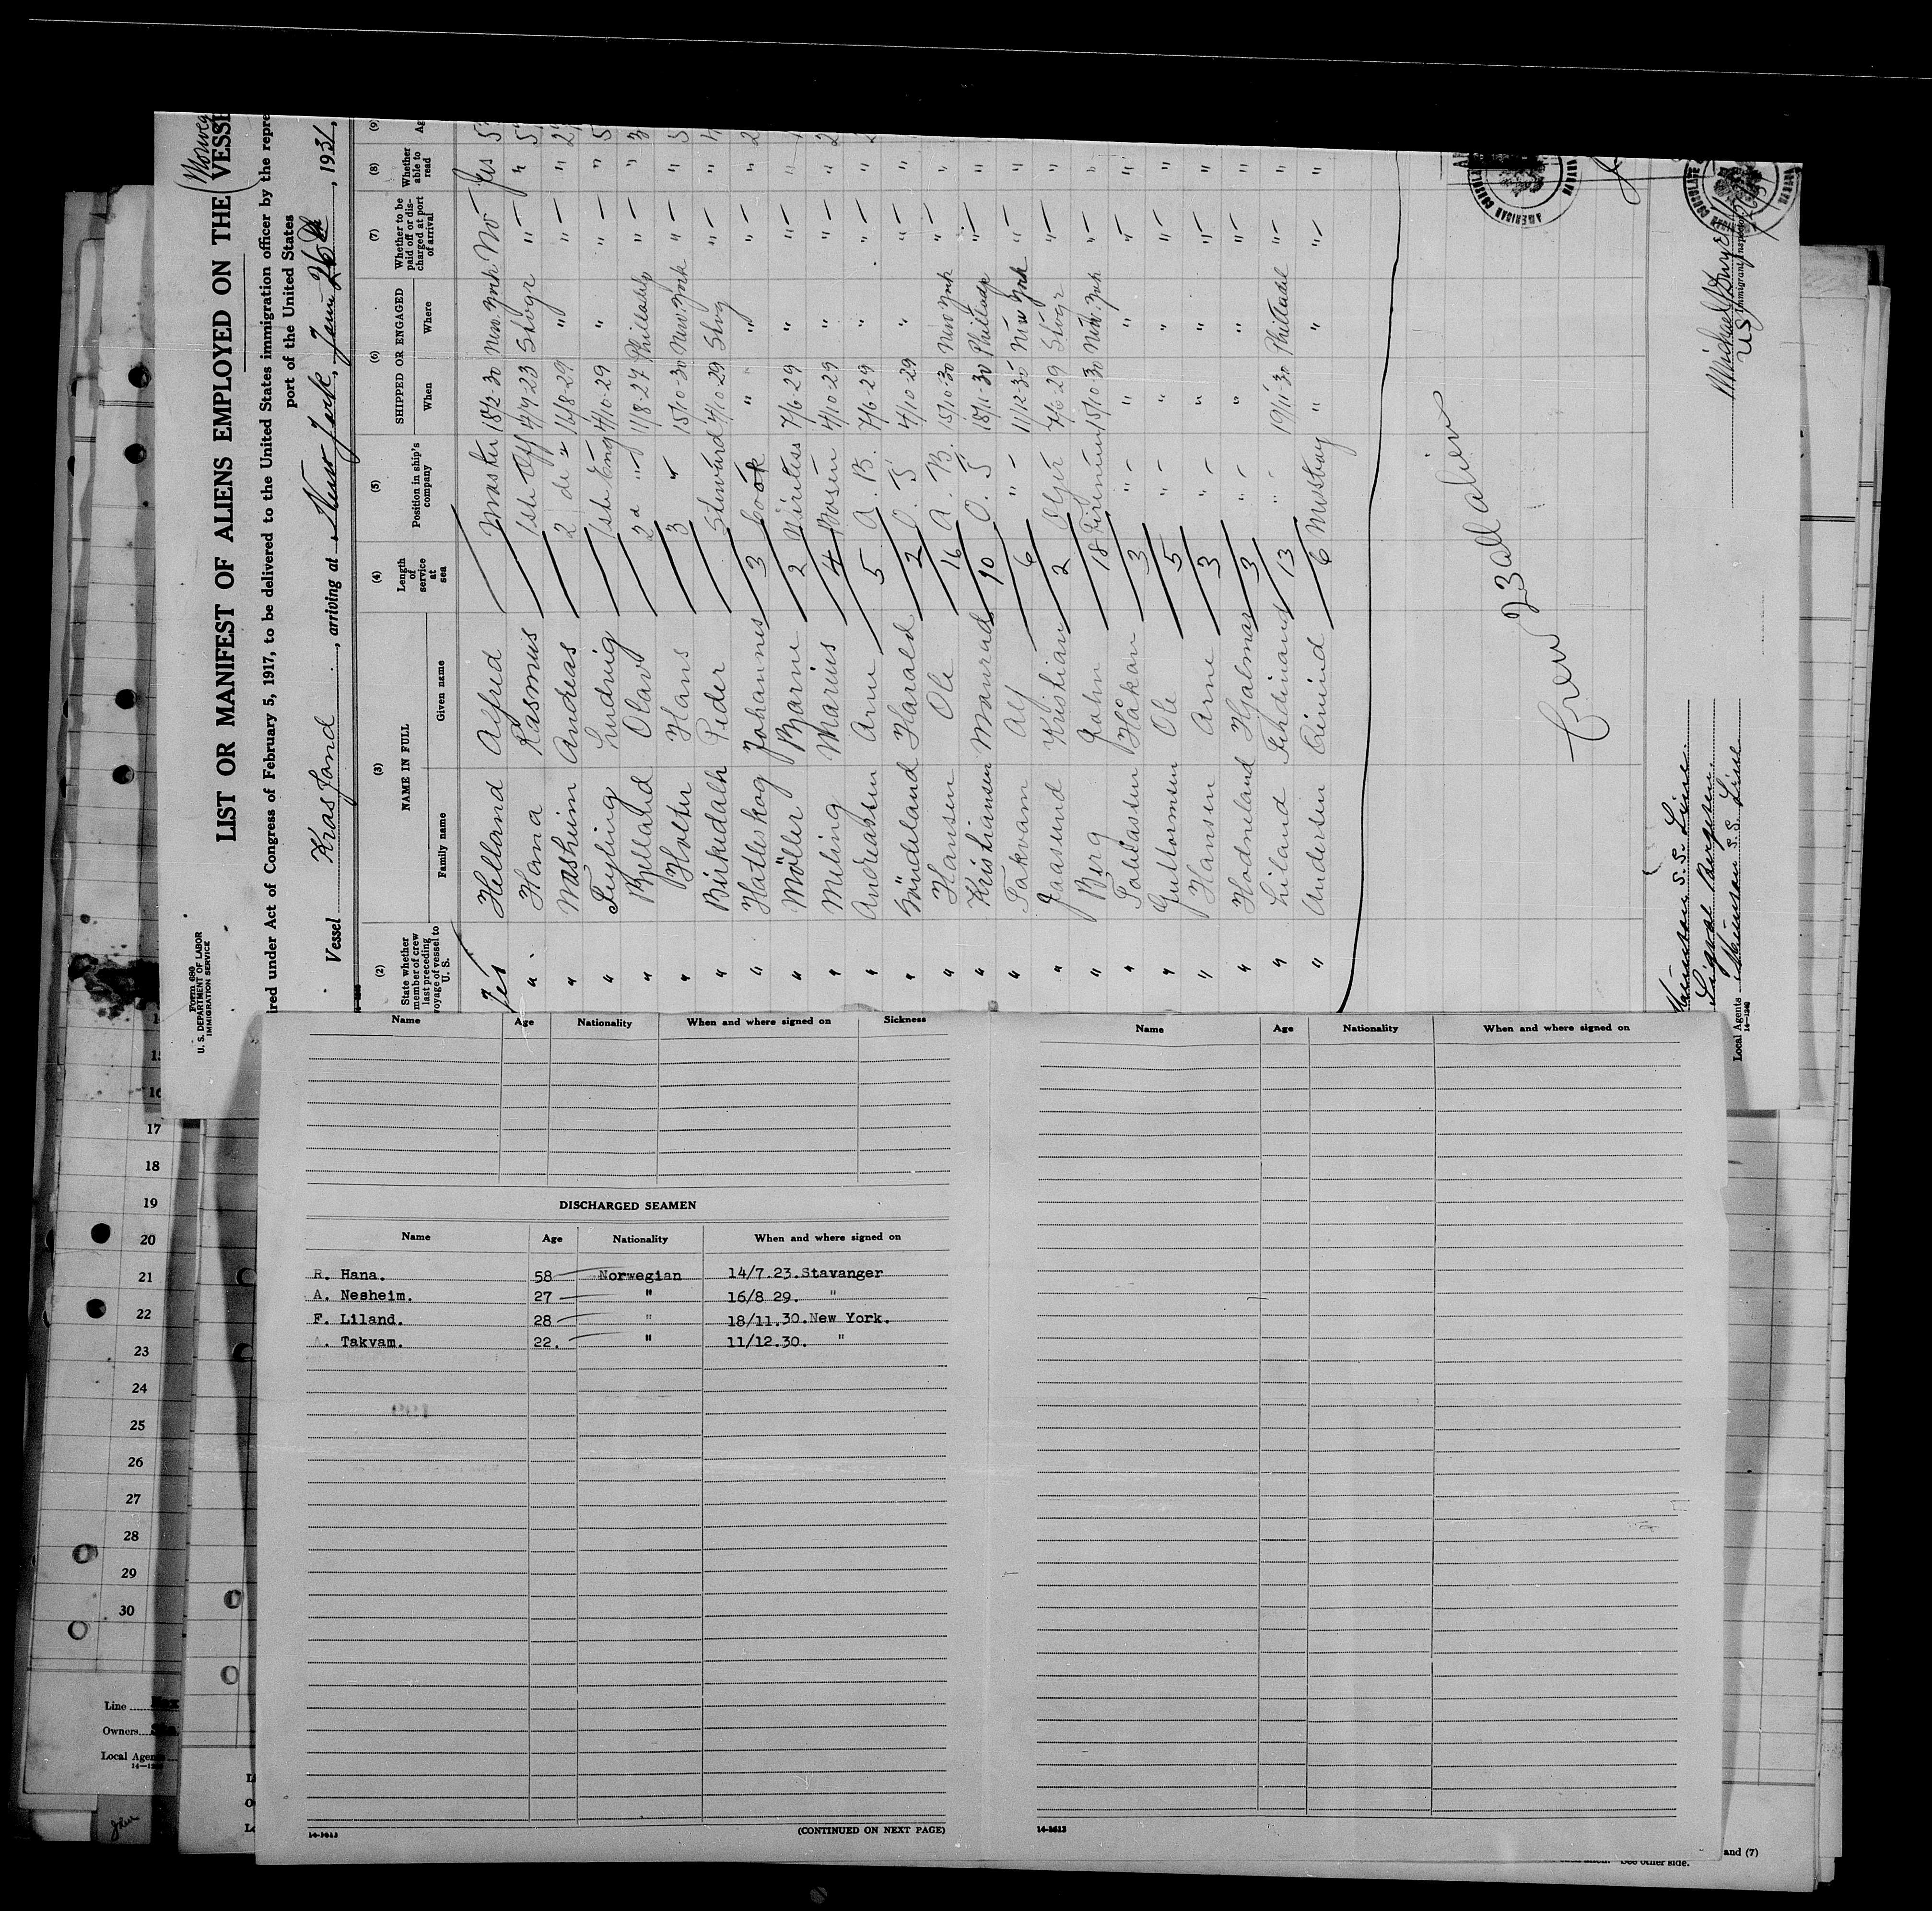 Form 680
U. S. DEPARTMENT OF LABOR
IMMIGRATION SERVICE
(Norweg
LIST OR MANIFEST OF ALIENS EMPLOYED ON THE VESSE
red under Act of Congress of February 5, 1917, to be delivered to the United States immigration officer by the repre
port of the United States
Vessel Krosfond, arriving at New York, Jan 26th, 1931,
(2) (3) (4) (5) (6) (7) (8) (9)
State whether member of crew last preceding voyage of vessel to U. S. NAME IN FULL Length of service at sea Position in ship's company SHIPPED OR ENGAGED Whether to be paid off or discharged at port of arrival Whether able to read Ag
Family name Given name When Where
Yes Helland Alfred Master 18/12-30 New York No Yes 5
" Hana Rasmus 1ste Off 14/7-23 Stvgr " "
" Andreas 2 " 16/8-29 " " " 2
" Ludvig 1ste Eng 4/10-29 " " " 5
" Bjelland Olav 2d " 11/8-27 " " 3
" Holter Hans 3 " 15/10-30 New York " " 5
" Birkedahl Peder Steward 4/10-29 Stvg " " 4
" Hatleskog Johannes 3 Cook " " " " 2
" Möller Bjarne 2 Wireless 7/6-29 " " "
" Meling Marius 4 Bosun 4/10-29 " " " 2
" Andreassen Arne 5 A. B. 7/6-29 " " " 2
" Harald 2 O. S 4/10-29 " " "
" Hansen Ole 16 A. B. 15/10-30 New York " "
" Kristiansen 10 O. S 18/11-30 " "
" Takvam Alf 6 " " 11/12-30 New York " "
" Jaasund Kristian 2 7/6-29 Stvgr " "
" Berg John 18 Fireman 15/10-30 New York " "
" Håkon 3 " " " " " "
" Guttormsen Ole 5 " " " " " "
" Hansen Arne 3 " " " " " "
" Hodneland Hjalmar 3 " " " " " "
" Liland Ferdinand 13 " " 19/11-30 " "
" Andersen 6 Messboy " " " "
Crew 23 all alien
AMERICAN CONSULAR
AMERICAN CONSULAR
Michael
US Immigrant Inspector
Munson S.S. Line
Sigval Bergesen.
Local Agents Munson S.S. Line
14—1240
Name Age Nationality When and where signed on Sickness
DISCHARGED SEAMEN
Name Age Nationality When and where signed on
R. Hana. 58 Norwegian 14/7.23.Stavanger
A. Nesheim. 27 " 16/8 29. "
F. Liland. 28 " 18/11.30.New York.
A. Takvam. 22. " 11/12.30. "
14-1613
(CONTINUED ON NEXT PAGE)
Name Age Nationality When and where signed on
14-1613
17
18
19
20
21
22
23
24
25
26
27
28
29
30
Line
Owners
Local Agen
See other side.
and (7)